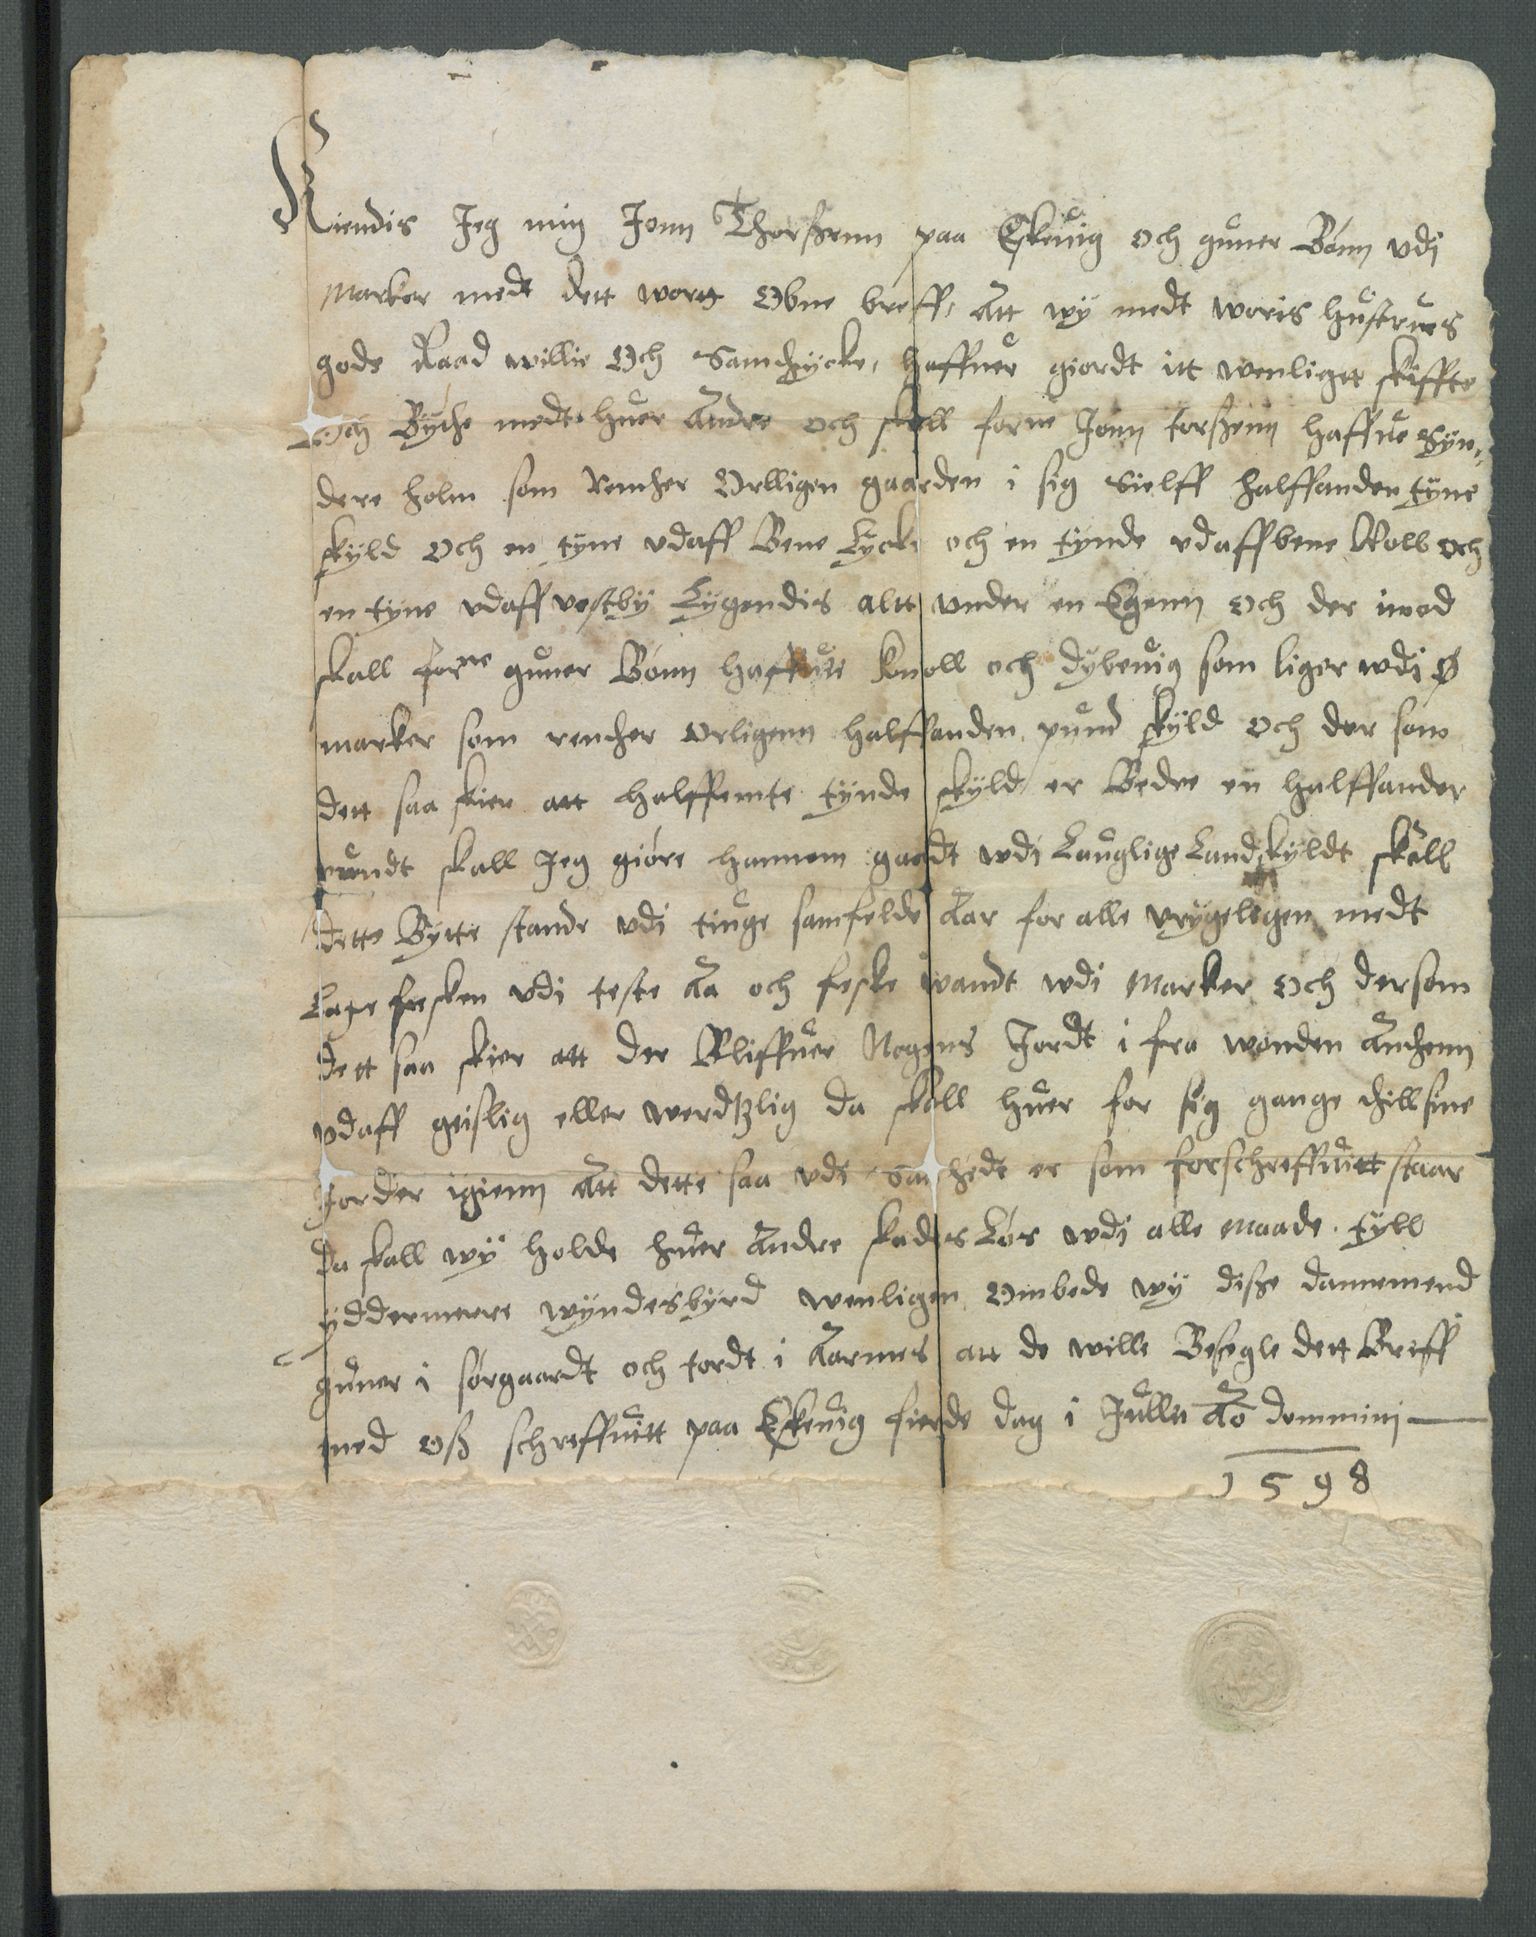 Kiendis Jeg mig Jonn Thorssenn paa Eskeuig och guner Bönn vdj
Marker medt dett wortt Obne breff, Att wÿ medt woris hustrues
gode Raad willie Och Samthÿcke, haffuer giordt itt wenligtt skiffte
Och Bÿthe medt huer Andre och skall forne Jonn torssenn haffue Sÿn,
dere holm som Rencher Orlligen gaarden i sig sielff halffanden tÿne
skÿld Och en tÿne vdaff Bene Lÿcke och en tÿnde vdaff bene Koll och
en tÿne vdaff vestbÿ Lÿgendis altt vnder en Egenn Och der imod
skall forne guner Bönn haffue knoll och dÿbeuig som liger wdj Ø
marker som rencher Orligenn halffanden pund skÿld Och der som
dett saa skier att halffemte tÿnde skÿld er Bedre en halffander
pundt skall Jeg giöre hannem gaadt wdi Lauglige Landskÿldt skall
dette Bÿtte stande vdi tiuge samfelde Aar for alle vrÿgeligen medt
Laxe fresken vdj teste Aa och feske wandt wdi Marker Och dersom
dett saa skier att der Bliffuer Nogens Jordt i fra wonden Anthenn
vdaff geistlig eller werdtzlig da skall huer for sig gange thill sine
Jorder igienn Att dette saa vdi Sandhede er som forschreffuitt staar
da skall wÿ holde huer Andre skades Lös wdj alle Maade. tÿll
ÿddermerre wÿndesbÿrd wenligen Ombede wÿ disse dannemend
guner i sörgaardt och tordt i Aarnes att de wille Besegle dett Breff
med oss schreffuitt paa Eskeuig fierde dag i Jullu Ao dommini
1598